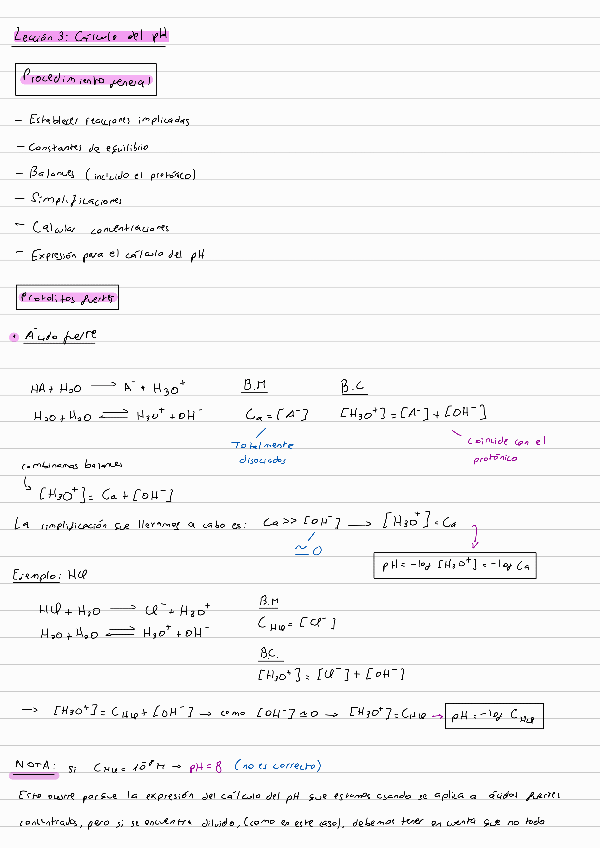 Lección 3: Cálculo del pH
Procedimiento general
- Establecer reacciones implicadas
- Constantes de equilibrio
- Balances (incluido el protónico)
- Simplificaciones
- Calcular concentraciones
- Expresión para el cálculo del pH
Protolitos fuertes
• Ácido fuerte
HA + H2O → A⁻ + H3O⁺ B.M B.C
H2O + H2O ⇌ H3O⁺ + OH⁻ Ca = [A⁻] [H3O⁺] = [A⁻] + [OH⁻]
Totalmente disociados
coincide con el protónico
combinamos balances
↳ [H3O⁺] = Ca + [OH⁻]
La simplificación que llevamos a cabo es: Ca >> [OH⁻] → [H3O⁺] = Ca
≃ 0
pH = -log [H3O⁺] = -log Ca
Ejemplo: HCl
HCl + H2O → Cl⁻ + H3O⁺ B.M
H2O + H2O ⇌ H3O⁺ + OH⁻ C HCl = [Cl⁻]
B.C.
[H3O⁺] = [Cl⁻] + [OH⁻]
→ [H3O⁺] = C HCl + [OH⁻] → como [OH⁻] ≃ 0 → [H3O⁺] = C HCl → pH = -log C HCl
NOTA: Si C HCl = 10⁻⁸ M → pH = 8 (no es correcto)
Esto ocurre porque la expresión del cálculo del pH que estamos usando se aplica a ácidos fuertes
concentrados, pero si se encuentra diluido, (como en este caso), debemos tener en cuenta que no todo